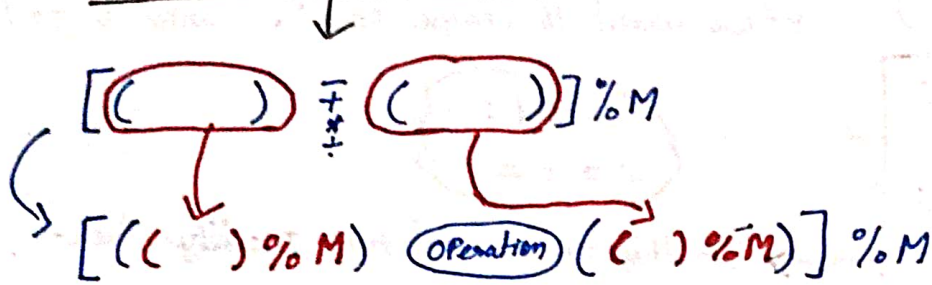 [( ) - + * ÷ ( )] % M
[(( ) % M) operation (( ) % M)] % M